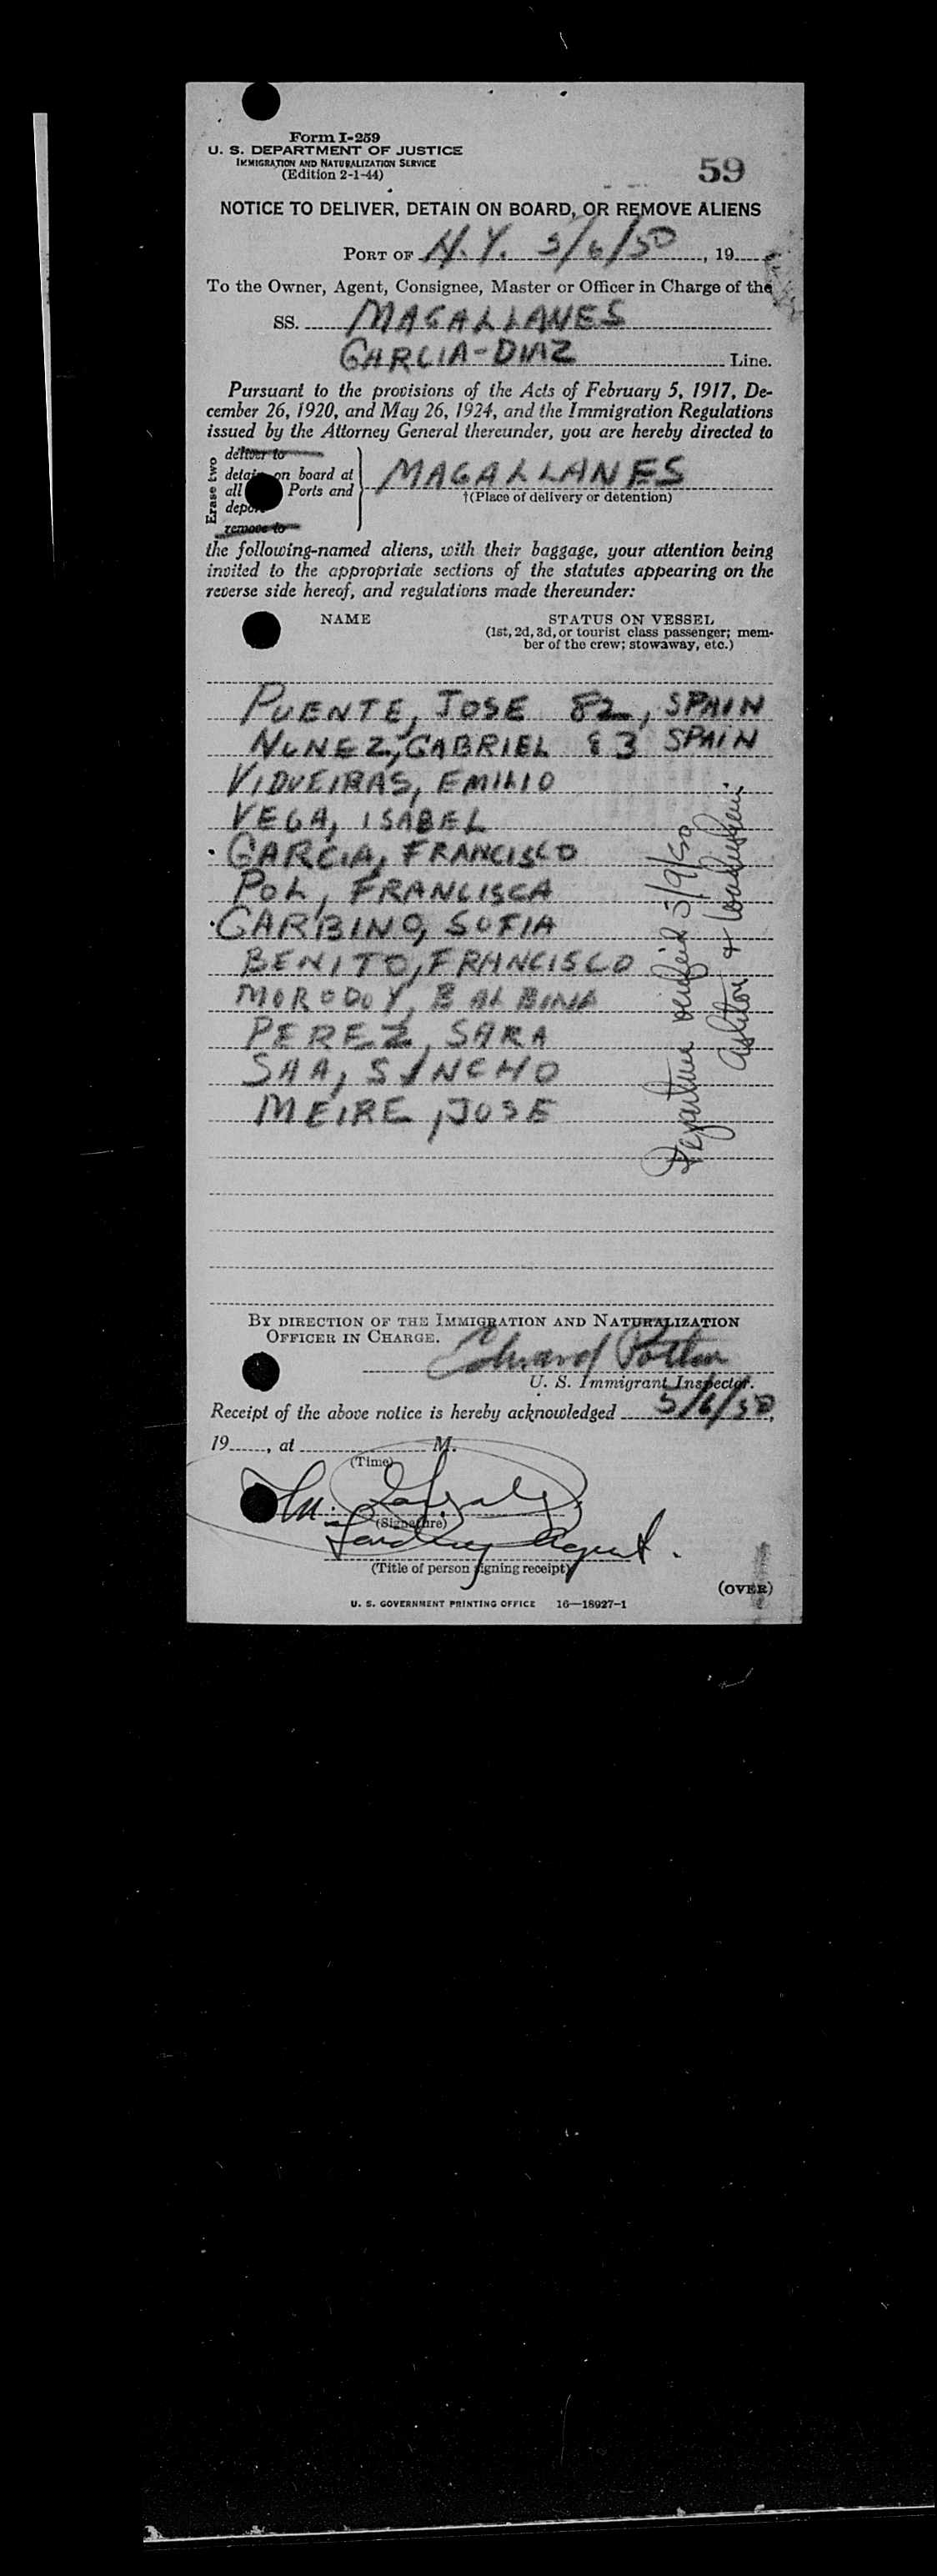 Form I-259
U. S. DEPARTMENT OF JUSTICE
IMMIGRATION AND NATURALIZATION SERVICE
(Edition 2-1-44)
59
NOTICE TO DELIVER, DETAIN ON BOARD, OR REMOVE ALIENS
PORT OF N.Y. 5/6/50, 19
To the Owner, Agent, Consignee, Master or Officer in Charge of the
SS. MAGALLANES
GARCIA-DIAZ Line.
Pursuant to the provisions of the Acts of February 5, 1917, De-
cember 26, 1920, and May 26, 1924, and the Immigration Regulations
issued by the Attorney General thereunder, you are hereby directed to
Erase two
deliver to
detain on board at
all Ports and
depor
remove to
MAGALLANES
†(Place of delivery or detention)
the following-named aliens, with their baggage, your attention being
invited to the appropriate sections of the statutes appearing on the
reverse side hereof, and regulations made thereunder:
NAME
STATUS ON VESSEL
(1st, 2d, 3d, or tourist class passenger; mem-
ber of the crew; stowaway, etc.)
PUENTE, JOSE 82, SPAIN
NUNEZ, GABRIEL 83 SPAIN
VIDUEIRAS, EMILIO
VEGA, ISABEL
GARCIA, FRANCISCO
POL, FRANCISCA
GARBINO, SOFIA
BENITO, FRANCISCO
MORODOY, BALBINA
PEREZ, SARA
SAA, SINCHO
MEIRE, JOSE
Departure verified 5/9/50
BY DIRECTION OF THE IMMIGRATION AND NATURALIZATION
OFFICER IN CHARGE.
Edward
U. S. Immigrant Inspector.
Receipt of the above notice is hereby acknowledged 5/6/50,
19, at M.
(Time)
(Signature)
Landing Agent.
(Title of person signing receipt)
(OVER)
U. S. GOVERNMENT PRINTING OFFICE 16—18927-1